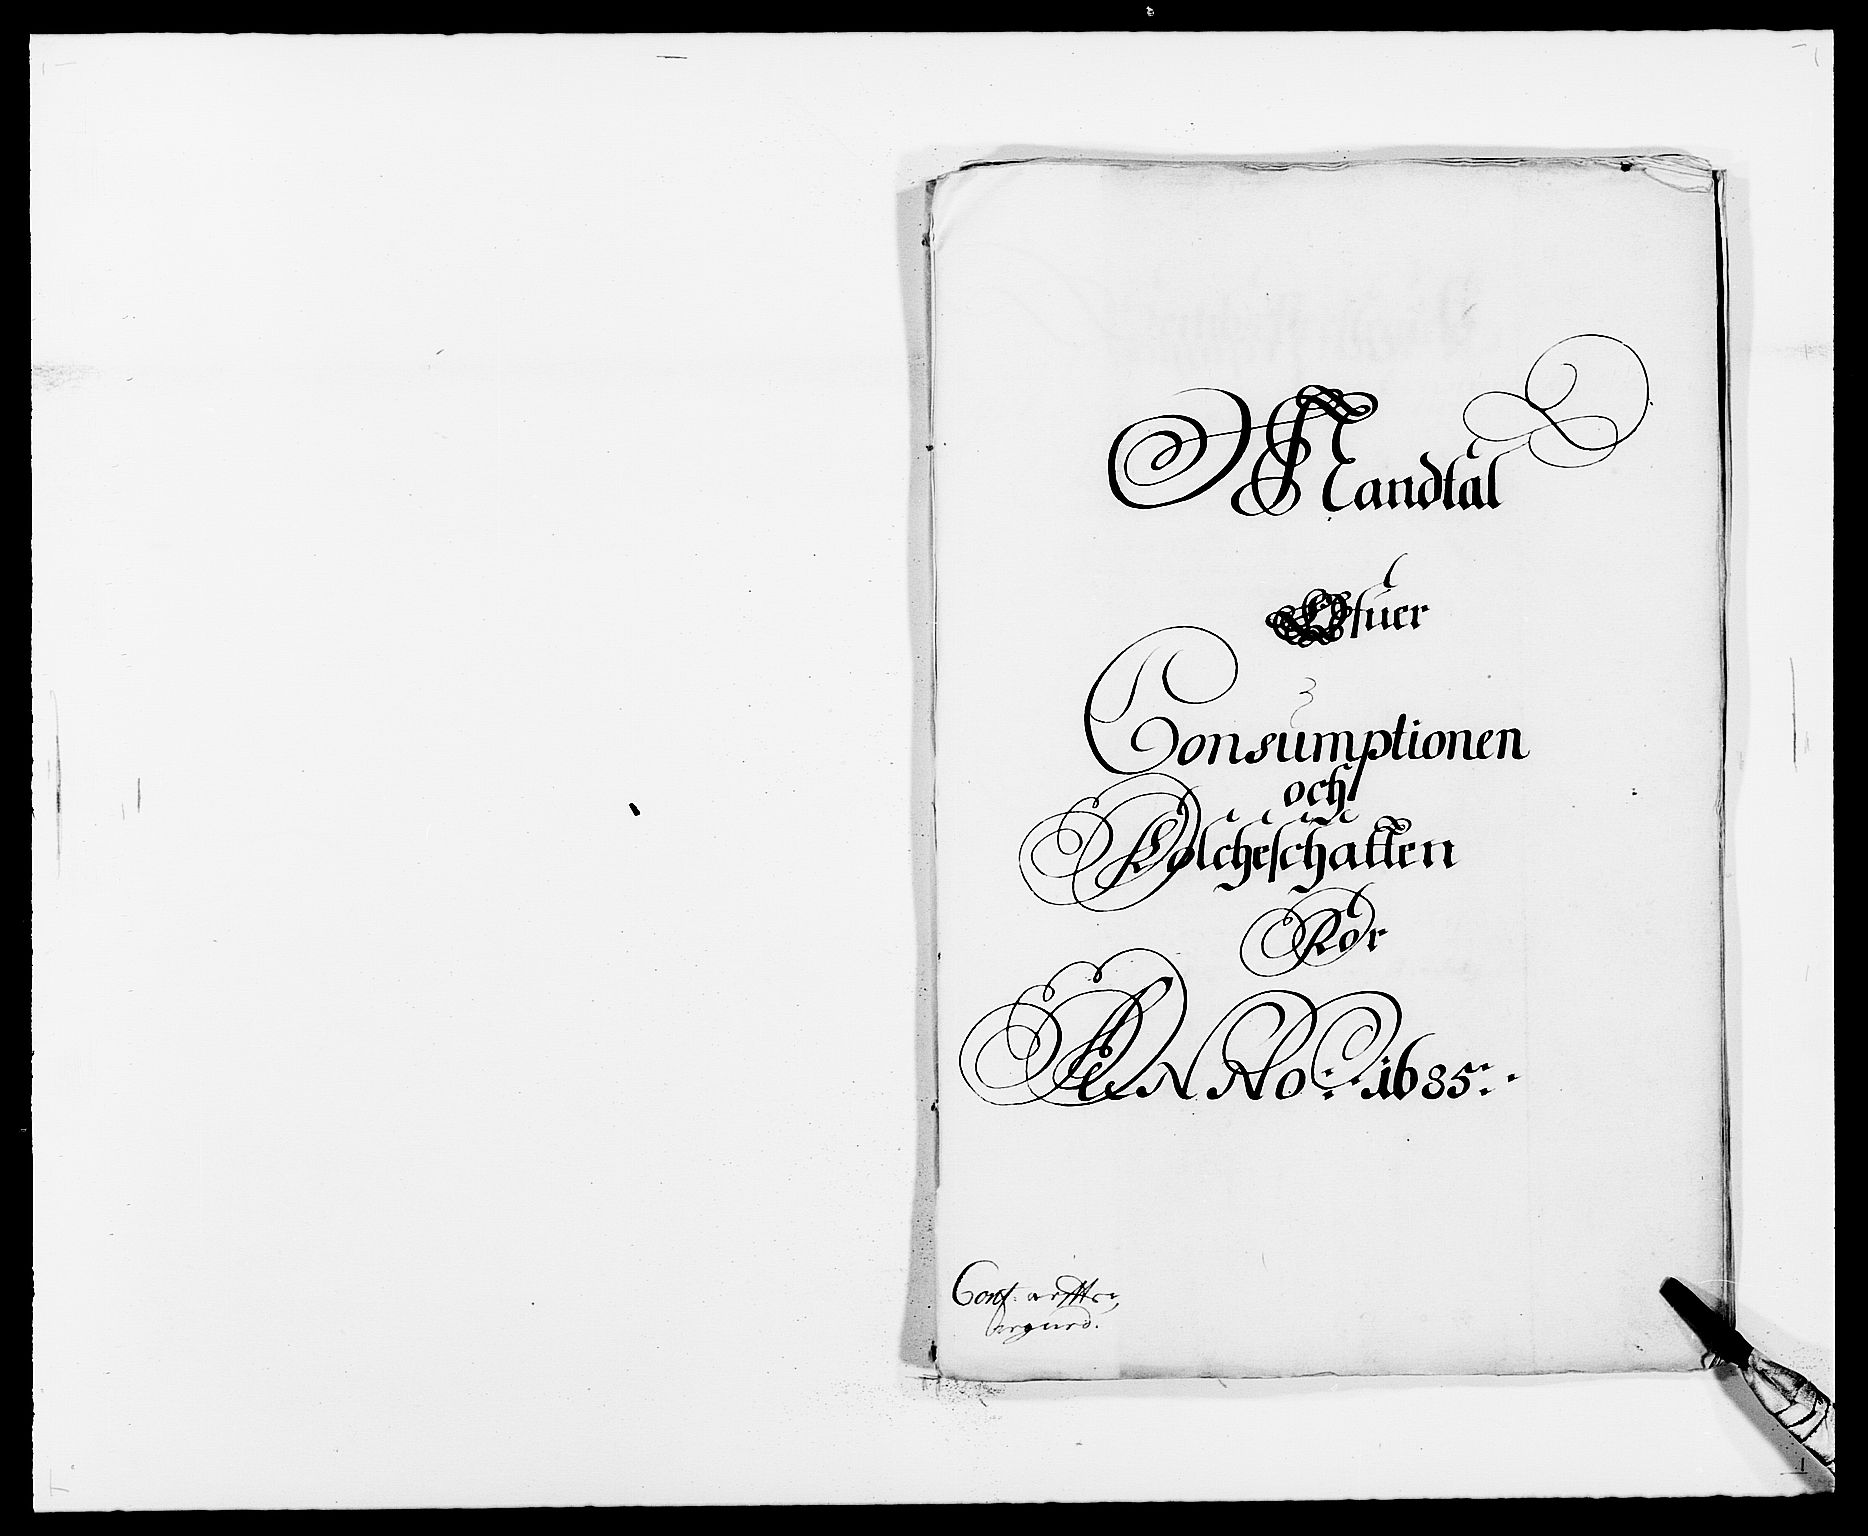 Mandtal
Öfuer
Consumptionen
och
Folcheschatten
För
ANNo: 1685:
Conf.
1